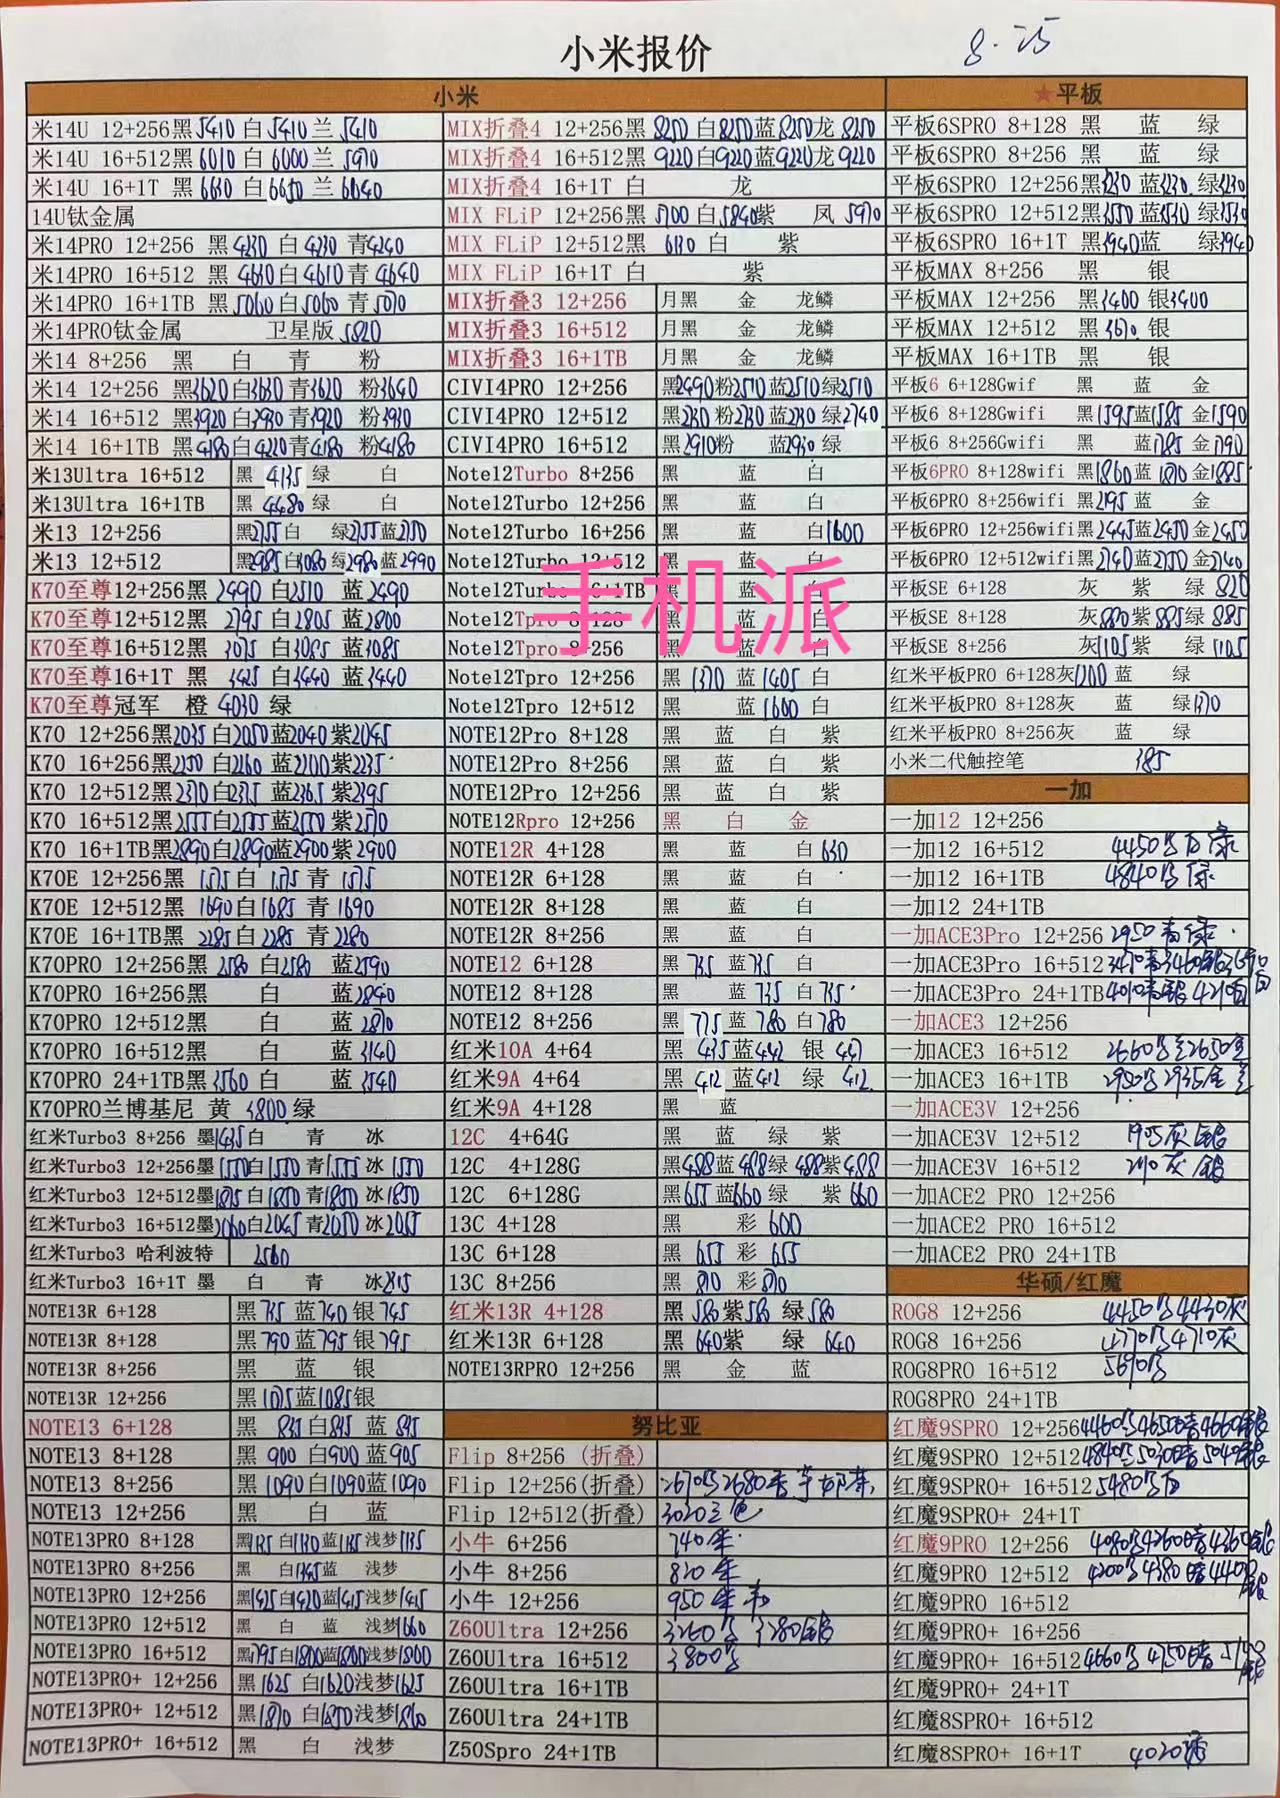 小米报价
8.25
小米
米14U 12+256黑5410 白5410 兰5410
米14U 16+512黑6010 白6000 兰5970
米14U 16+1T 黑6630 白6650 兰6640
14U钛金属
米14PRO 12+256 黑4230 白4230 青4240
米14PRO 16+512 黑4630 白4610 青4640
米14PRO 16+1TB 黑5060 白5060 青5070
米14PRO钛金属 卫星版5820
米14 8+256 黑 白 青 粉
米14 12+256 黑3620 白3630 青3620 粉3640
米14 16+512 黑3920 白3930 青3920 粉3930
米14 16+1TB 黑4180 白4220 青4180 粉4180
米13Ultra 16+512 黑 4135 绿 白
米13Ultra 16+1TB 黑 4480 绿 白
米13 12+256 黑2755 白 绿2755 蓝2750
米13 12+512 黑2985 白3080 绿2980 蓝2990
K70至尊12+256黑 2490 白2510 蓝2490
K70至尊12+512黑 2795 白2805 蓝2800
K70至尊16+512黑 3075 白3085 蓝3085
K70至尊16+1T 黑 3425 白3440 蓝3440
K70至尊冠军 橙 4030 绿
K70 12+256黑2035 白2050 蓝2040 紫2045
K70 16+256黑2250 白2260 蓝2200 紫2235
K70 12+512黑2370 白2375 蓝2365 紫2395
K70 16+512黑2555 白2555 蓝2550 紫2570
K70 16+1TB黑2890 白2890 蓝2900 紫2900
K70E 12+256黑 1575 白 1575 青 1575
K70E 12+512黑 1690 白1685 青 1690
K70E 16+1TB黑 2285 白2285 青 2280
K70PRO 12+256黑 2580 白2580 蓝2590
K70PRO 16+256黑 白 蓝2840
K70PRO 12+512黑 白 蓝2870
K70PRO 16+512黑 白 蓝3140
K70PRO 24+1TB黑3560 白 蓝3540
K70PRO兰博基尼 黄 3800 绿
红米Turbo3 8+256 墨1435 白 青 冰
红米Turbo3 12+256墨1550 白1550 青1555 冰1550
红米Turbo3 12+512墨1875 白1850 青1850 冰1850
红米Turbo3 16+512墨2060 白2045 青2050 冰2055
红米Turbo3 哈利波特 2560
红米Turbo3 16+1T 墨 白 青 冰2315
NOTE13R 6+128 黑735 蓝740 银745
NOTE13R 8+128 黑790 蓝795 银795
NOTE13R 8+256 黑 蓝 银
NOTE13R 12+256 黑1075 蓝1085 银
NOTE13 6+128 黑 835 白845 蓝 845
NOTE13 8+128 黑 900 白900 蓝905
NOTE13 8+256 黑1090 白1090 蓝1090
NOTE13 12+256 黑 白 蓝
NOTE13PRO 8+128 黑1135 白1130 蓝1135 浅梦1135
NOTE13PRO 8+256 黑 白1345 蓝 浅梦
NOTE13PRO 12+256 黑1425 白1420 蓝1415 浅梦1415
NOTE13PRO 12+512 黑 白 蓝 浅梦1660
NOTE13PRO 16+512 黑1795 白1800 蓝1800 浅梦1800
NOTE13PRO+ 12+256 黑1625 白1620 浅梦1625
NOTE13PRO+ 12+512 黑1870 白1850 浅梦1860
NOTE13PRO+ 16+512 黑 白 浅梦
MIX折叠4 12+256黑 8250 白8250 蓝8250 龙8250
MIX折叠4 16+512黑 9220 白9220 蓝9220 龙9220
MIX折叠4 16+1T 白 龙
MIX FLiP 12+256黑 5700 白5840 紫 凤 5970
MIX FLiP 12+512黑 6130 白 紫
MIX FLiP 16+1T 白 紫
MIX折叠3 12+256 月黑 金 龙鳞
MIX折叠3 16+512 月黑 金 龙鳞
MIX折叠3 16+1TB 月黑 金 龙鳞
CIVI4PRO 12+256 黑2490 粉2510 蓝2510 绿2510
CIVI4PRO 12+512 黑2730 粉2730 蓝2730 绿2740
CIVI4PRO 16+512 黑2910 粉 蓝2930 绿
Note12Turbo 8+256 黑 蓝 白
Note12Turbo 12+256 黑 蓝 白
Note12Turbo 16+256 黑 蓝 白1600
Note12Turbo 12+512 黑 蓝 白
Note12Turbo 16+1TB 黑 蓝 白
手机派
Note12Tpro 8+128 黑 蓝 白
Note12Tpro 8+256 黑 蓝 白
Note12Tpro 12+256 黑 1370 蓝1405 白
Note12Tpro 12+512 黑 蓝1600 白
NOTE12Pro 8+128 黑 蓝 白 紫
NOTE12Pro 8+256 黑 蓝 白 紫
NOTE12Pro 12+256 黑 蓝 白 紫
NOTE12Rpro 12+256 黑 白 金
NOTE12R 4+128 黑 蓝 白630
NOTE12R 6+128 黑 蓝 白
NOTE12R 8+128 黑 蓝 白
NOTE12R 8+256 黑 蓝 白
NOTE12 6+128 黑 735 蓝735 白
NOTE12 8+128 黑 蓝 735 白735
NOTE12 8+256 黑 775 蓝 780 白780
红米10A 4+64 黑 435 蓝442 银 447
红米9A 4+64 黑 412 蓝412 绿 412
红米9A 4+128 黑 蓝
12C 4+64G 黑 蓝 绿 紫
12C 4+128G 黑488 蓝488 绿488 紫488
12C 6+128G 黑655 蓝660 绿 紫660
13C 4+128 黑 彩 600
13C 6+128 黑 655 彩 655
13C 8+256 黑 810 彩810
红米13R 4+128 黑 580 紫580 绿580
红米13R 6+128 黑 640 紫 绿 640
NOTE13RPRO 12+256 黑 金 蓝
努比亚
Flip 8+256 (折叠)
Flip 12+256(折叠) 2670 2680
Flip 12+512(折叠) 3020三色
小牛 6+256 740
小牛 8+256 820
小牛 12+256 950
Z60Ultra 12+256 3260 3280银
Z60Ultra 16+512 3800
Z60Ultra 16+1TB
Z60Ultra 24+1TB
Z50Spro 24+1TB
★平板
平板6SPRO 8+128 黑 蓝 绿
平板6SPRO 8+256 黑 蓝 绿
平板6SPRO 12+256黑3230 蓝3230 绿3230
平板6SPRO 12+512黑3550 蓝3530 绿3530
平板6SPRO 16+1T 黑3940 蓝 绿3940
平板MAX 8+256 黑 银
平板MAX 12+256 黑3400 银3400
平板MAX 12+512 黑3670 银
平板MAX 16+1TB 黑 银
平板6 6+128Gwif 黑 蓝 金
平板6 8+128Gwifi 黑1595 蓝1585 金1590
平板6 8+256Gwifi 黑 蓝1785 金1790
平板6PRO 8+128wifi 黑1860 蓝 1870 金1885
平板6PRO 8+256wifi 黑2195 蓝 金
平板6PRO 12+256wifi黑2445 蓝2450 金2450
平板6PRO 12+512wifi黑2740 蓝2750 金2740
平板SE 6+128 灰 紫 绿 820
平板SE 8+128 灰880 紫885 绿 885
平板SE 8+256 灰1105 紫 绿 1105
红米平板PRO 6+128灰1200 蓝 绿
红米平板PRO 8+128灰 蓝 绿1370
红米平板PRO 8+256灰 蓝 绿
小米二代触控笔 385
一加
一加12 12+256
一加12 16+512 4450 白 绿
一加12 16+1TB 4840 绿
一加12 24+1TB
一加ACE3Pro 12+256 2950青绿
一加ACE3Pro 16+512
一加ACE3Pro 24+1TB
一加ACE3 12+256
一加ACE3 16+512 2660 2650金
一加ACE3 16+1TB 2935金
一加ACE3V 12+256
一加ACE3V 12+512 1905灰 银
一加ACE3V 16+512 灰 银
一加ACE2 PRO 12+256
一加ACE2 PRO 16+512
一加ACE2 PRO 24+1TB
华硕/红魔
ROG8 12+256 4450 4430灰
ROG8 16+256 4770 4710灰
ROG8PRO 16+512 5690
ROG8PRO 24+1TB
红魔9SPRO 12+256 4460 4650暗 4660银
红魔9SPRO 12+512 4840 5030暗 5040银
红魔9SPRO+ 16+512 5480
红魔9SPRO+ 24+1T
红魔9PRO 12+256 4080 4260暗 4360银
红魔9PRO 12+512 4200 4380暗 4440银
红魔9PRO 16+512
红魔9PRO+ 16+256
红魔9PRO+ 16+512 4660 4750暗
红魔9PRO+ 24+1T
红魔8SPRO+ 16+512
红魔8SPRO+ 16+1T 4020